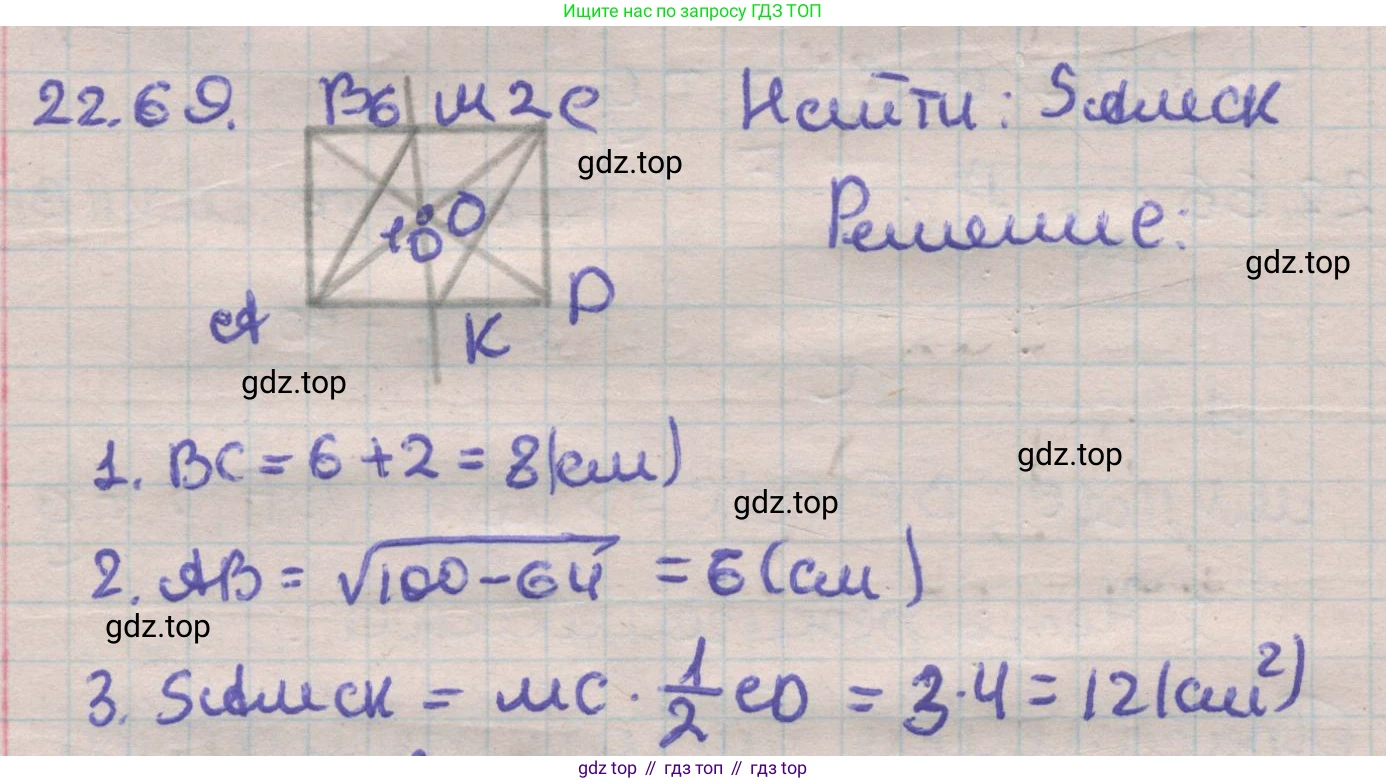 Ищите нас по запросу ГДЗ ТОП
22.69. B 6 M 2 C Найти: SAMCK
gdz.top
10 O Решение:
gdz.top
A K D
gdz.top
1. BC = 6 + 2 = 8 (см)
gdz.top
gdz.top
2. AB = √100 - 64 = 6 (см)
gdz.top
3. SAMCK = MC · 1/2 CD = 3 · 4 = 12 (см²)
gdz top // гдз топ // gdz top